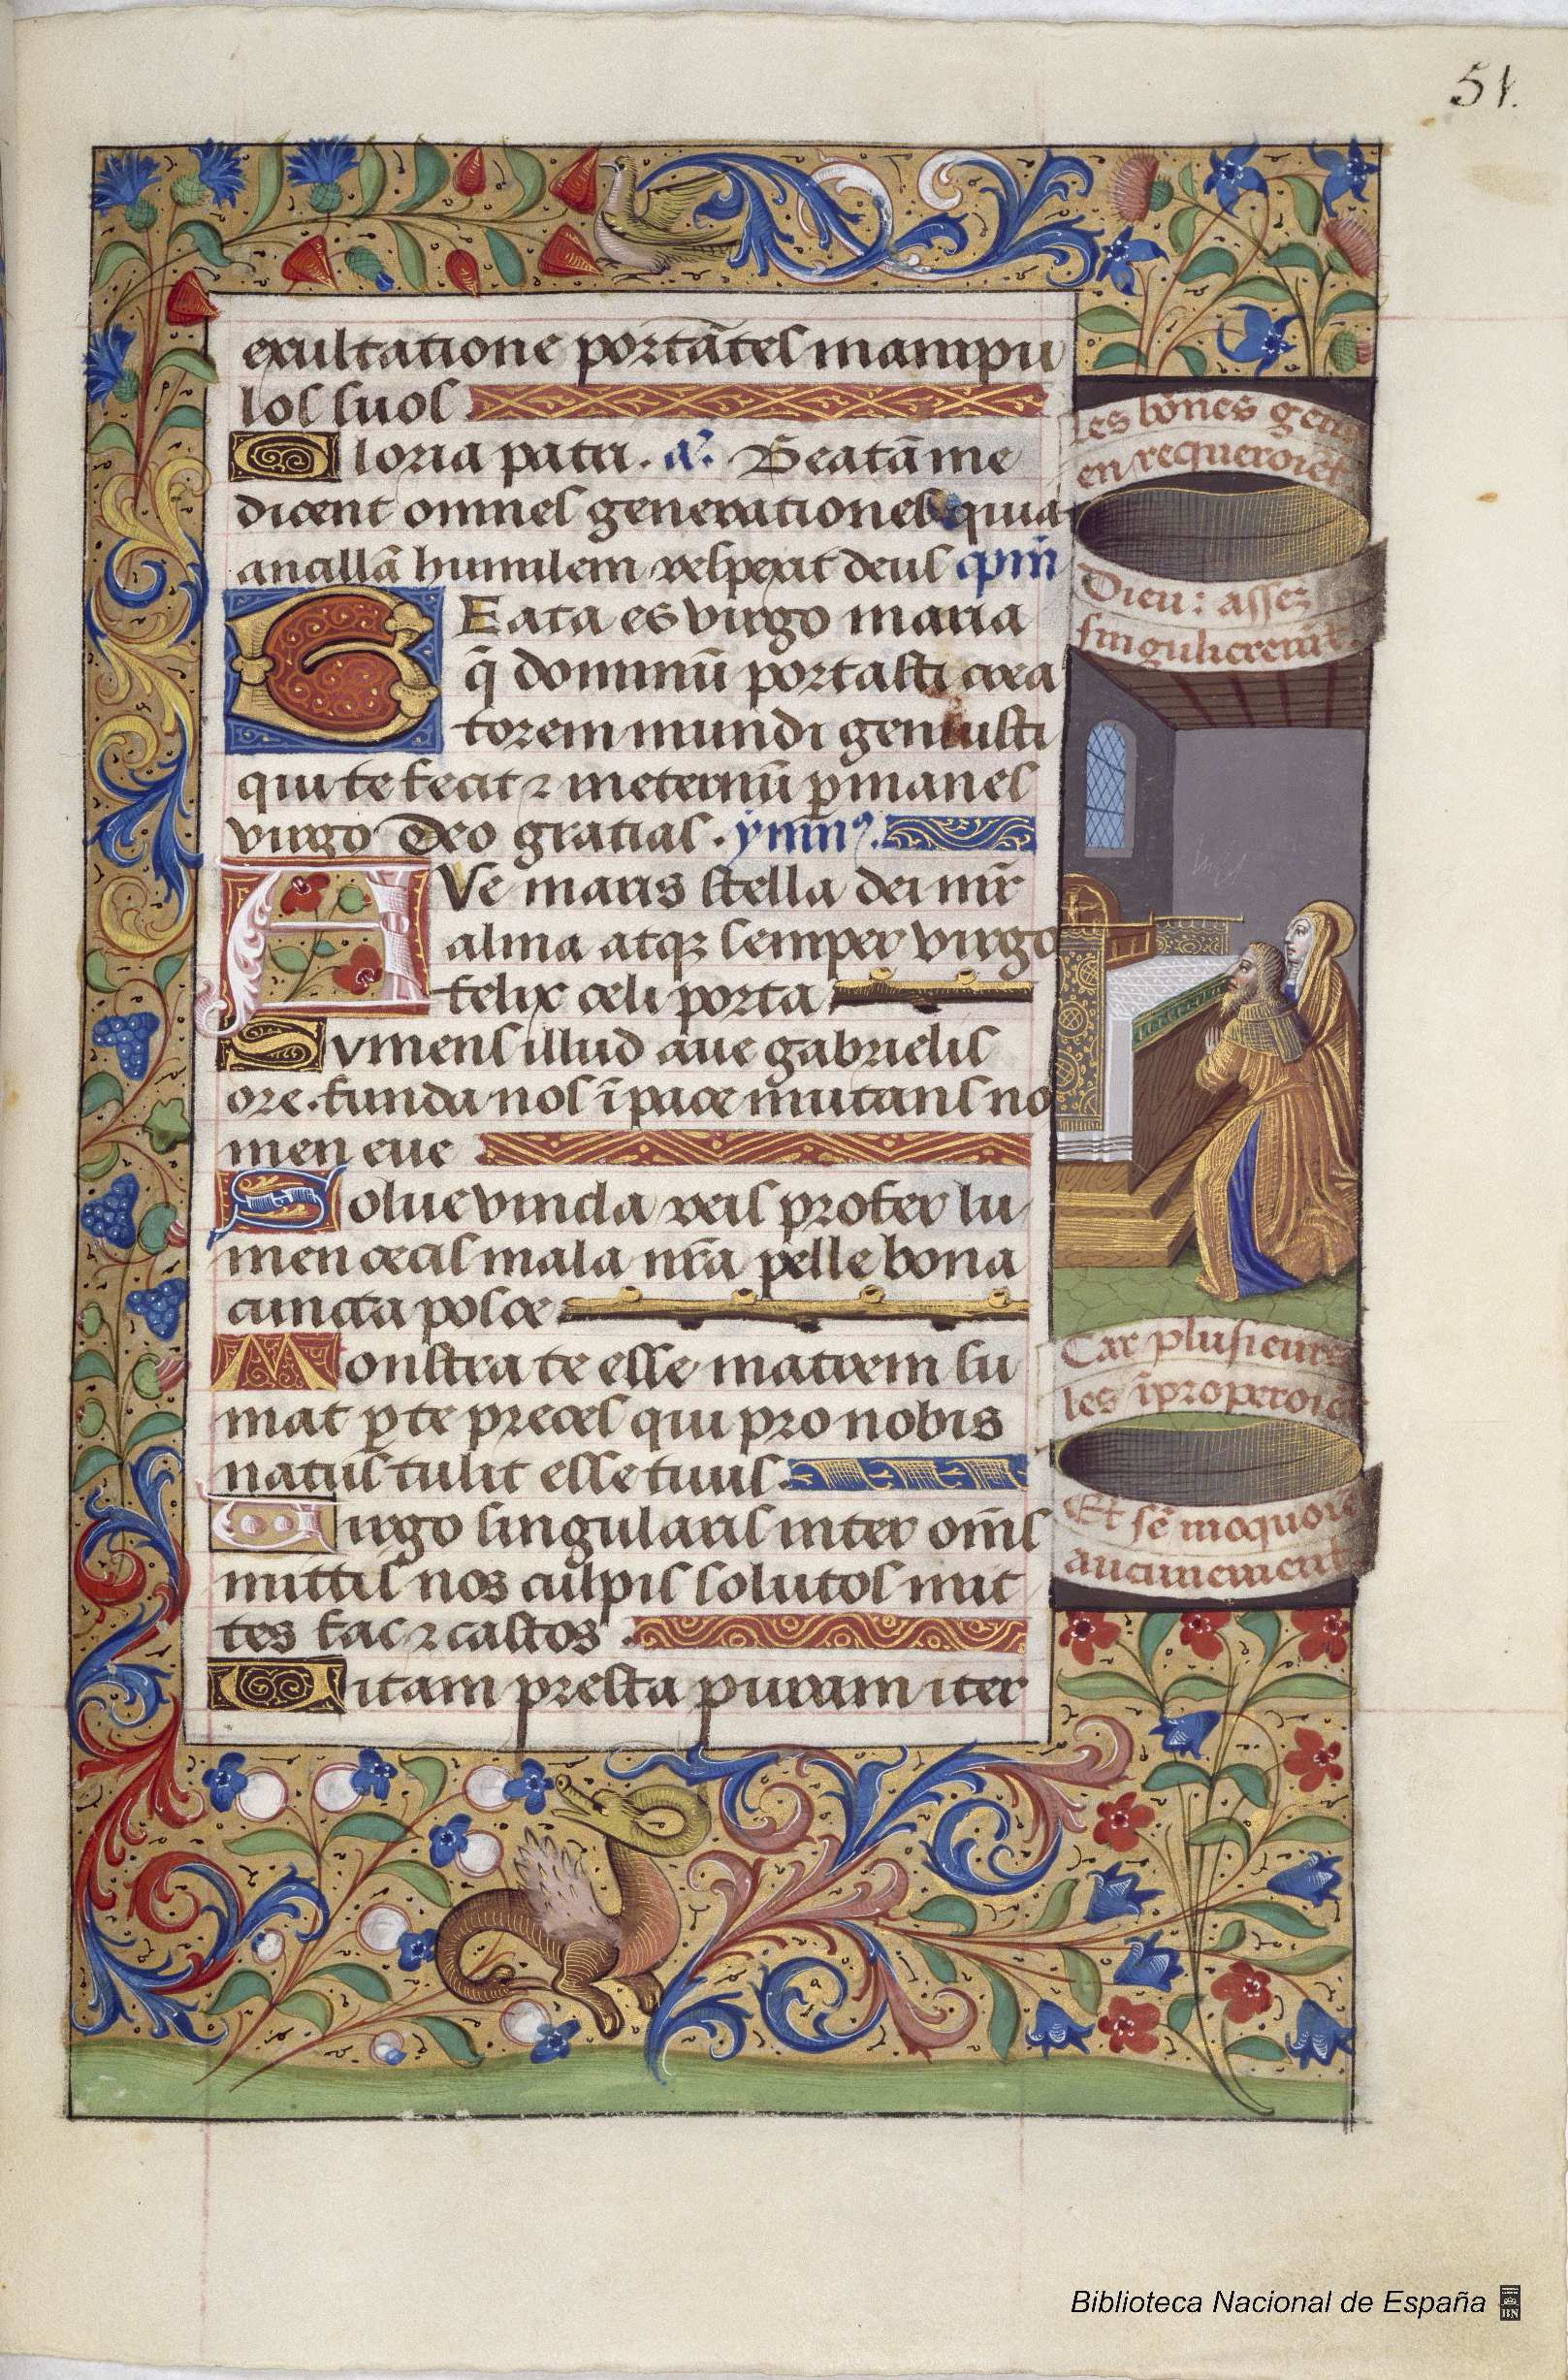 51.
exultatione portātes manipu
los suos
Gloria patri. a᷎. Beatā me
dicent omnes generationes quia
ancillā humilem respexit deus cpm̄
BEata es virgo maria
q̄ dominū portasti crea
torem mundi genuisti
qui te fecit ⁊ ineternū ꝑmanes
virgo Deo gratias. ymn⁹.
AVe maris stella dei mr̄
alma atqꝫ semper virgo
felix celi porta
Sumens illud aue gabrielis
ore. funda nos ī pace mutans no
men eue
Solue vincla reis profer lu
men cecis mala nr̄a pelle bona
cuncta posce
Monstra te esse matrem su
mat ꝑ te preces qui pro nobis
natus tulit esse tuus.
Virgo singularis inter om̄s
mittis nos culpis solutos mit
tes fac ⁊ castos
Vitam presta puram iter
Les bōnes gens
en requeroiēt
Dieu: assez
singulieremēt.
Car plusieurs
les īproperoiēt
Et sē moquoiē
aucunement
Biblioteca Nacional de España
BN